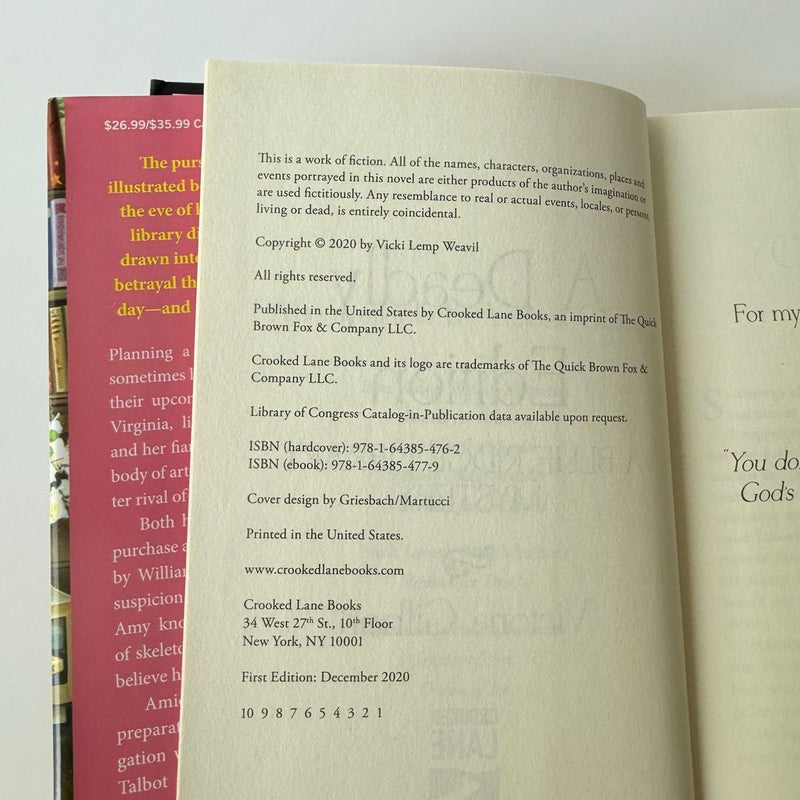 $26.99/$35.99
The
illustrated
the eve of
library
drawn into
betrayal
day—and
Planning a
sometimes
their
Virginia,
and her
body of art
ter rival of
Both
purchase a
by
suspicion
Amy
of
believe
preparat
gation
Talbot
This is a work of fiction. All of the names, characters, organizations, places and
events portrayed in this novel are either products of the author's imagination or
are used fictitiously. Any resemblance to real or actual events, locales, or persons,
living or dead, is entirely coincidental.
Copyright © 2020 by Vicki Lemp Weavil
All rights reserved.
Published in the United States by Crooked Lane Books, an imprint of The Quick
Brown Fox & Company LLC.
Crooked Lane Books and its logo are trademarks of The Quick Brown Fox &
Company LLC.
Library of Congress Catalog-in-Publication data available upon request.
ISBN (hardcover): 978-1-64385-476-2
ISBN (ebook): 978-1-64385-477-9
Cover design by Griesbach/Martucci
Printed in the United States.
www.crookedlanebooks.com
Crooked Lane Books
34 West 27th St., 10th Floor
New York, NY 10001
First Edition: December 2020
10 9 8 7 6 5 4 3 2 1
For my
"You do
God's